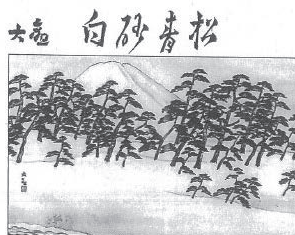 大観 白砂青松